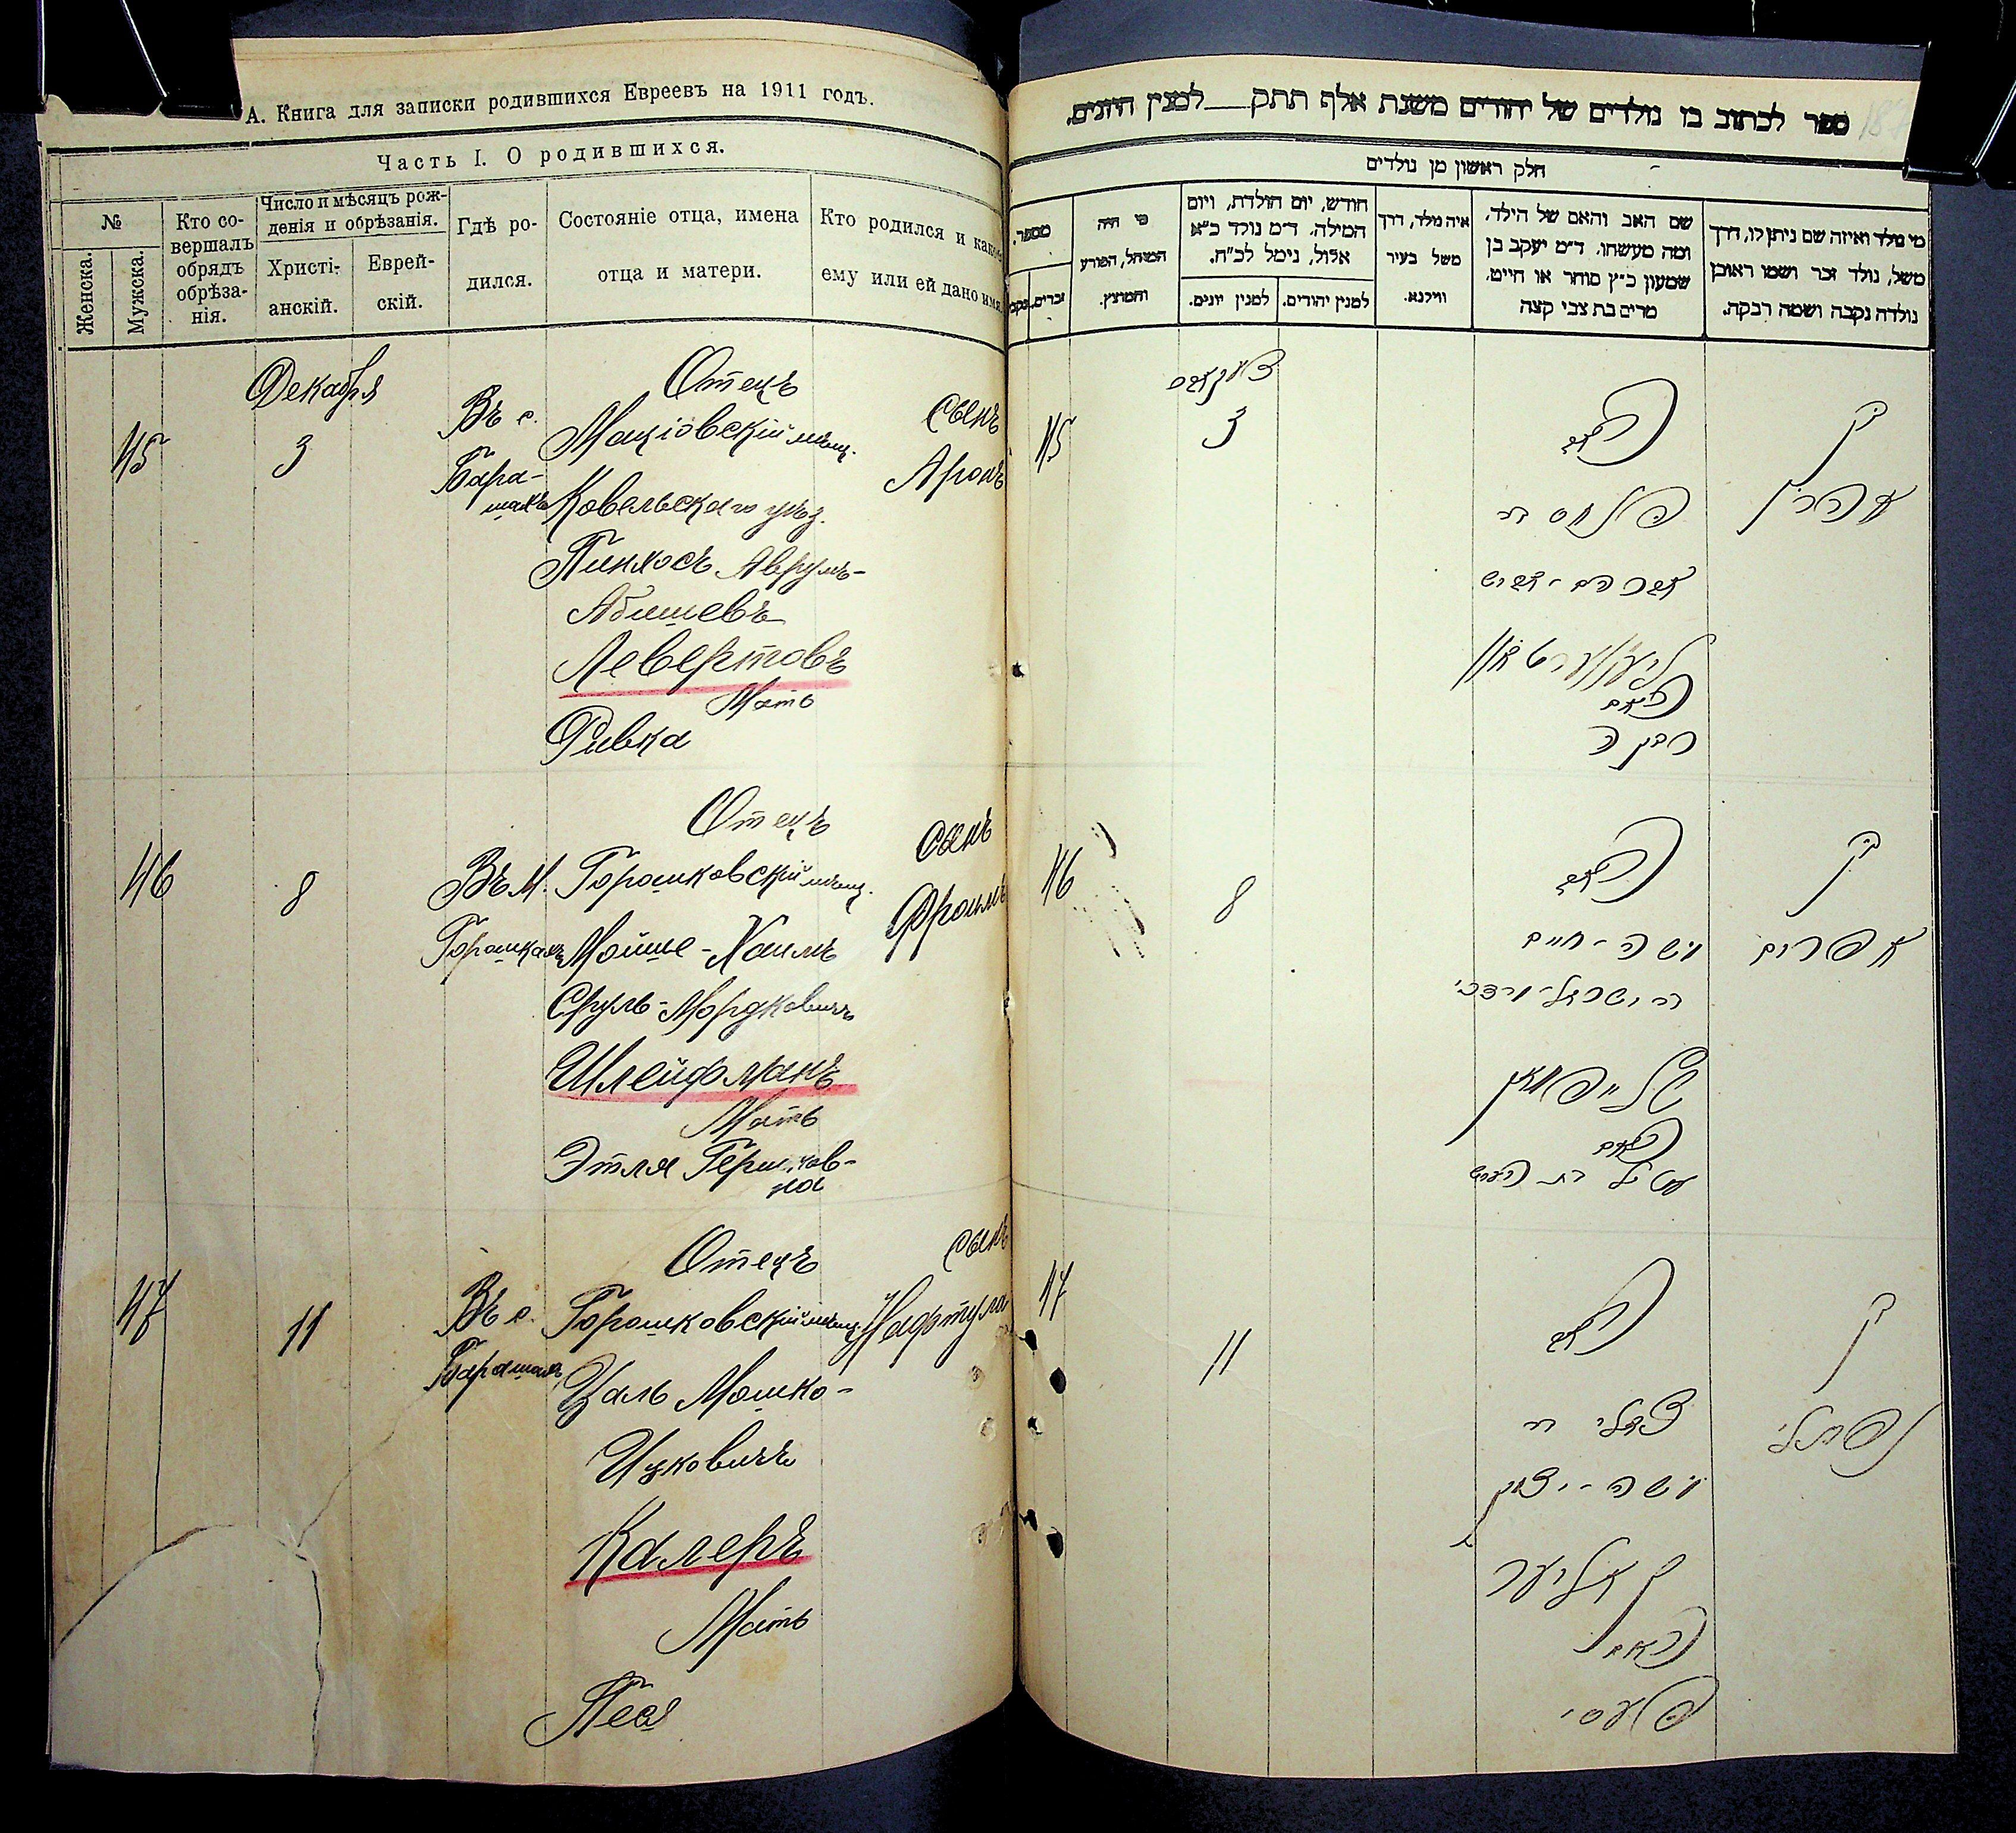 А. Книга для записки родившихся Евреевъ на 1911 годъ.
Часть I. О родившихся.
№
Женска.
Мужска.
Кто со-
вершалъ
обрядъ
обрѣза-
нія.
Число и мѣсяцъ рож-
денія и обрѣзанія.
Христі-
анскій.
Еврей-
скій.
Гдѣ ро-
дился.
Состояніе отца, имена
отца и матери.
Кто родился и какое
ему или ей дано имя.
Декабря
45
3
Въ с.
Бара-
шахъ
Отецъ
Маціовскій мѣщ.
Ковельскаго уѣз.
Пинхосъ Аврумъ-
Абишевъ
Левертовъ
Мать
Ривка
Сынъ
Аронъ
46
8
Въ м.
Горошкахъ
Отецъ
Горошковскій мѣщ.
Мойше-Хаимъ
Сруль-Мордковичъ
Шлейфманъ
Мать
Этля Гершков-
на
Сынъ
Фроимъ
47
11
Въ с.
Барашахъ
Отецъ
Горошковскій мѣщ.
Цаль Мошко-
Ицковичъ
Калеръ
Мать
Песя
Сынъ
Нафтула
ספר לכתוב בו נולדים של יהודים משנת אלף תתק__למנין היונים.
חלק ראשון מן נולדים
מי נולד ואיזה שם ניתן לו, דרך
משל, נולד זכר ושמו ראובן
נולדה נקבה ושמה רבקה.
שם האב והאם של הילד,
ומה מעשהו, ד״מ יעקב בן
שמעון כ״ץ סוחר או חייט,
מרים בת צבי קצה
איה נולד, דרך
משל בעיר
ווילנא.
חודש, יום הולדת, ויום
המילה. ד״מ נולד כ״א
אלול, נימל לכ״ח.
למנין יהודים.
למנין יונים.
מי היה
המוהל, הפורע
והמוצץ.
מספר.
זכרים.
נקב
דעקאבר
45
3
האב
פנחס בר
אברהם-אביש
ליעווערטאוו
האם
רבקה
בן
אהרן
46
8
האב
משה-חיים
בר ישראל-מרדכי
שלייפמאן
האם
עטיל בת הירש
בן
אפרים
47
11
האב
צאלי בר
משה-יצחק
קאליער
האם
פעסי
בן
נפתלי